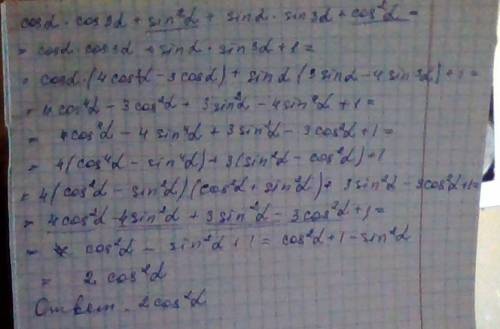 cosα · cos3α + sin²α + sinα · sin3α + cos²α =
= cosα · cos3α + sinα · sin3α + 1 =
= cosα · (4cos³α - 3cosα) + sinα (3sinα - 4sin³α) + 1 =
= 4cos⁴α - 3cos²α + 3sin²α - 4sin⁴α + 1 =
= 4cos⁴α - 4sin⁴α + 3sin²α - 3cos²α + 1 =
= 4(cos⁴α - sin⁴α) + 3(sin²α - cos²α) + 1
= 4(cos²α - sin²α)(cos²α + sin²α) + 3sin²α - 3cos²α + 1 =
= 4cos²α - 4sin²α + 3sin²α - 3cos²α + 1 =
= cos²α - sin²α + 1 = cos²α + 1 - sin²α
= 2cos²α
Ответ. 2cos²α